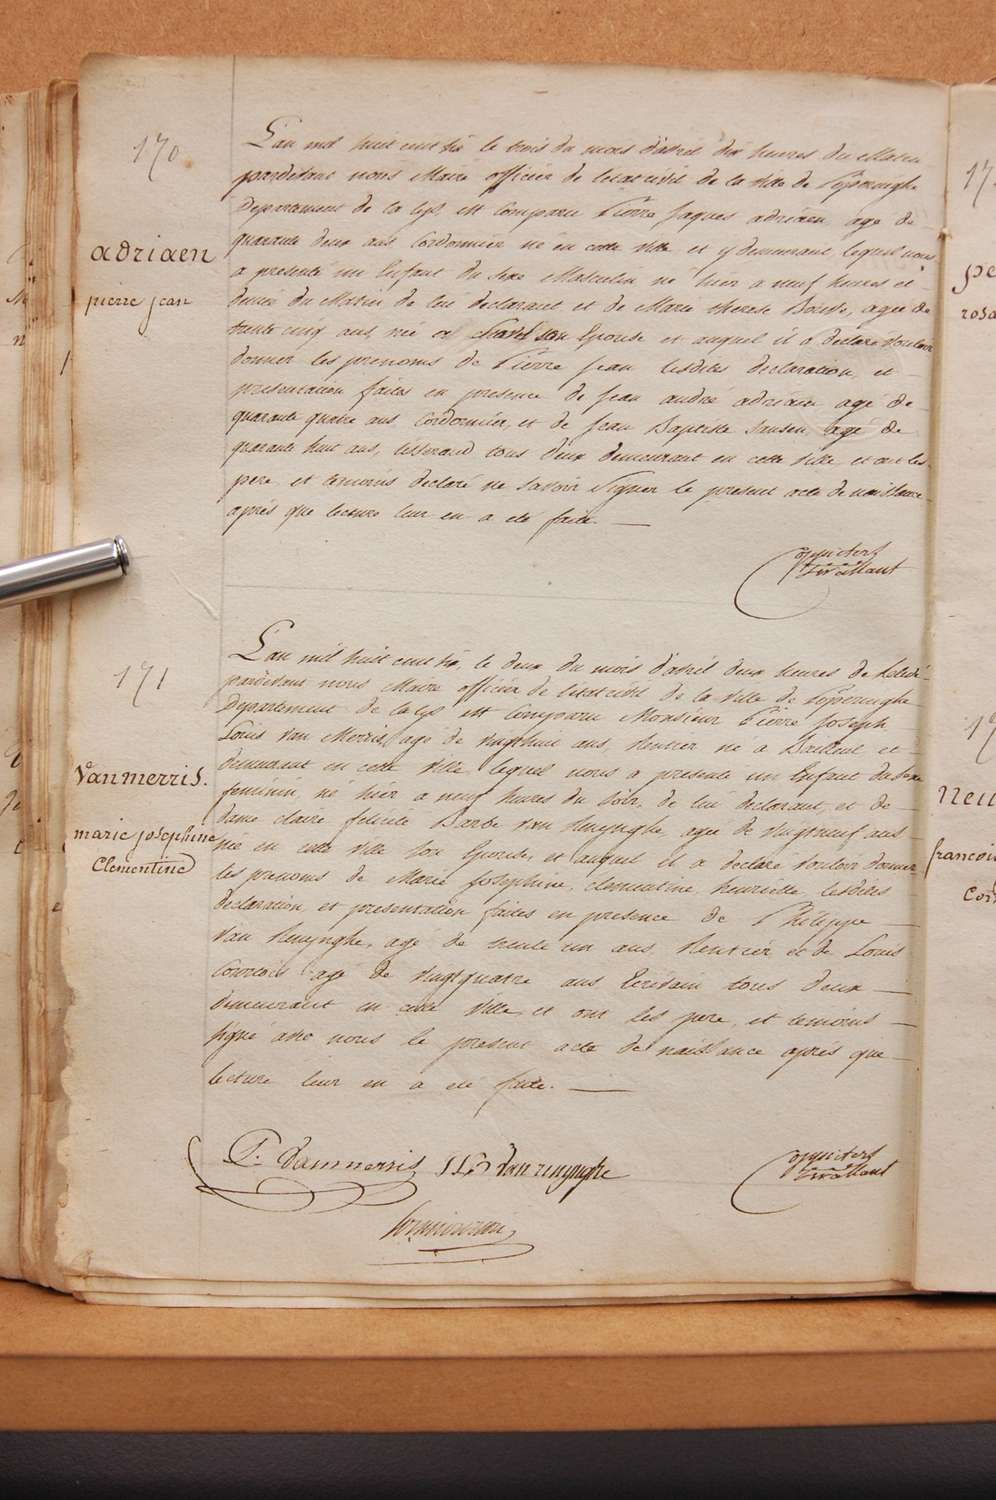 170
adriaen
pierre jean
L'an mil huit cent dix le trois du mois d'avril dix heures du Matin
pardevant nous Maire officier de l'etat civil de la ville de Poperinghe
Departement de la Lys, est Comparu Pierre Jaques adriaen, agé de
quarante deux ans Cordonnier né en cette ville et y demeurant, lequel nous
a presenté un Enfant du sexe Masculin né hier a neuf heures et
demie du Matin de lui declarant et de Marie therese agée de
trente cinq ans, née son Epouse et auquel il a declaré vouloir
donner les prenoms de Pierre Jean lesdites declaration et
presentation faites en presence de Jean andré adriaen agé de
quarante quatre ans, Cordonnier, et de Jean Baptiste Jansen, agé de
quarante huit ans, tisserand tous deux demeurant en cette ville et ont les
pere et temoins declaré ne savoir signer le present acte de naissance
après que lecture leur en a eté faite.
171
Vanmerris.
marie josephine
Clementine
L'an mil huit cent dix, le deux du mois d'avril deux heures de relevée
pardevant nous Maire officier de l'etat civil de la ville de Poperinghe
Departement de la Lys est Comparu Monsieur Pierre Joseph
Louis Van Merris, agé de vingt huit ans, Rentier né a Bailleul et
demeurant en cette ville, lequel nous a presenté un Enfant du sexe
feminin, né hier a neuf heures du soir, de lui declarant, et de
dame claire felicité Barbe Van Renynghe agée de vingt neuf ans
née en cette ville son Epouse, et auquel il a declaré vouloir donner
les prenoms de Marie Josephine, clementine, henriette, lesdites
declaration, et presentation faites en presence de Philippe
Van Renynghe, agé de trente un ans, Rentier et de Louis
Courtois agé de vingt quatre ans Ecrivain tous deux
demeurant en cette ville, et ont les pere, et temoins
signé avec nous le present acte de naissance après que
lecture leur en a eté faite.
P. Vanmerris
Vanrenynghe